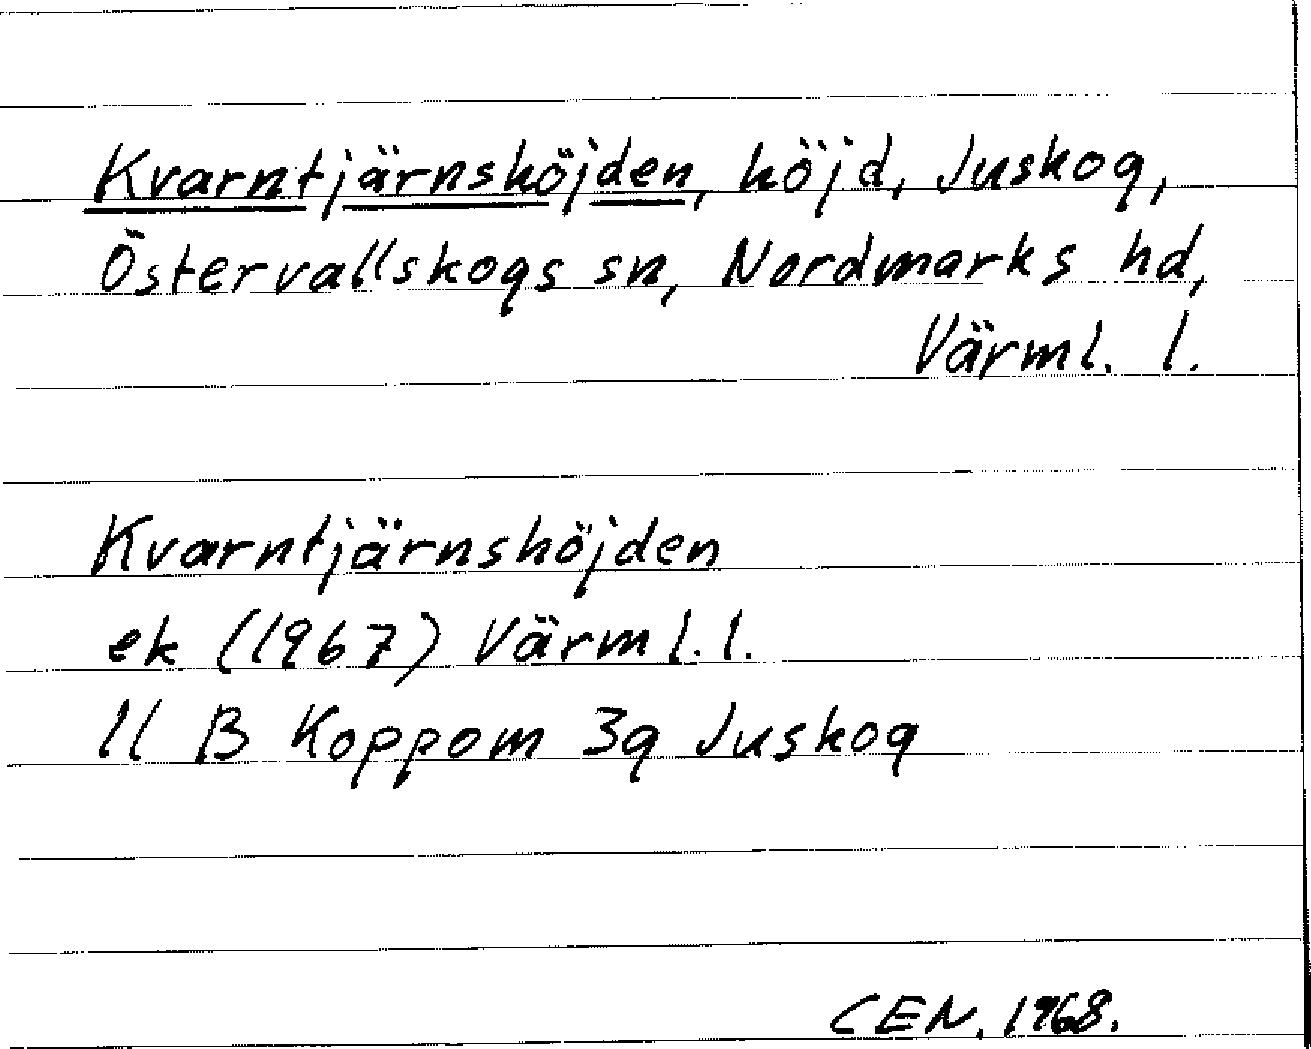 Kvarntjärnshöjden, höjd, Juskog,
Östervallskogs sn, Nordmarks hd,
Värml. l.
Kvarntjärnshöjden
ek (1967) Värml. l.
11 B Koppom 3g Juskog
CEN, 1968.